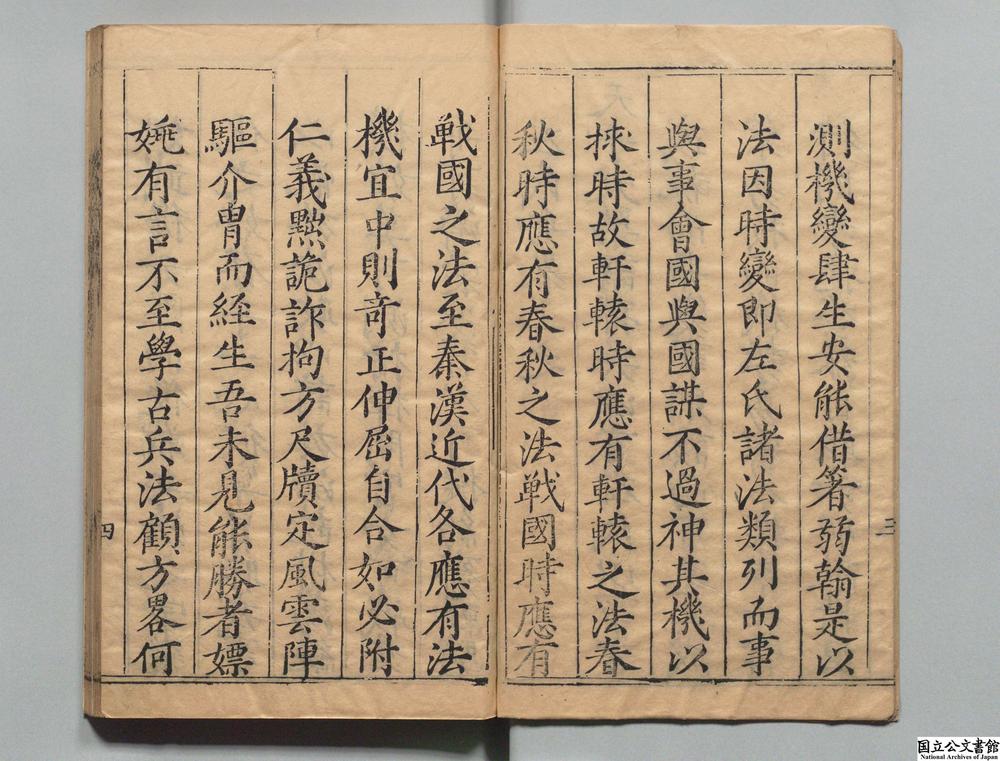 測機變肆生安能借箸弱翰是以
法因時變即左氏諸法類列而事
與事會國與國謀不過神其機以
捄時故軒轅時應有軒轅之法春
秋時應有春秋之法戦國時應有
三
戦國之法至秦漢近代各應有法
機宜中則竒正伸屈自合如必附
仁義黙詭詐拘方尺牘定風雲陣
驅介胄而経生吾未見能勝者嫖
姚有言不至學古兵法顧方畧何
四
国立公文書館
National Archives of Japan